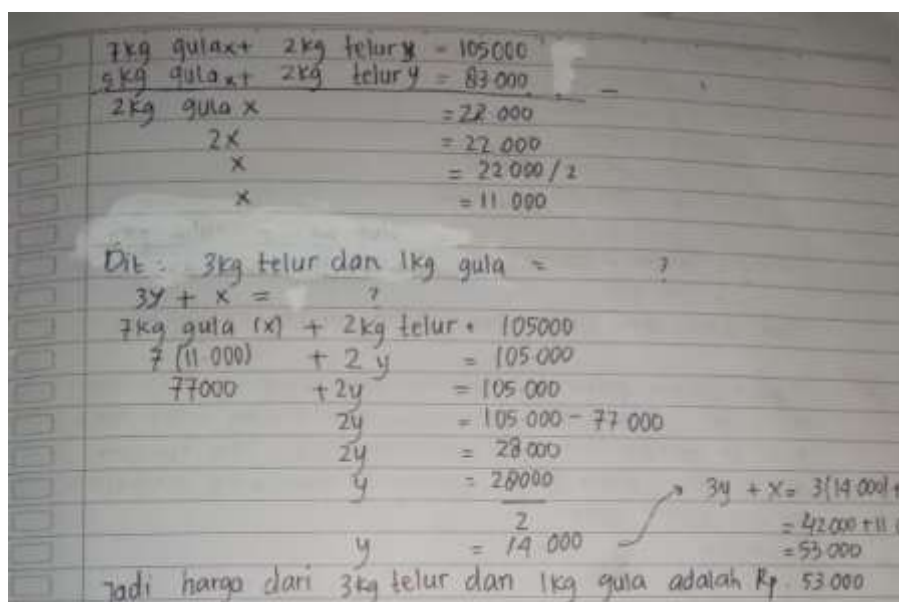 7kg gula x + 2kg telur y = 105000
5kg gula x + 2kg telur y = 83 000
2kg gula x = 22 000
2x = 22 000
x = 22 000 / 2
x = 11 000
Dit : 3kg telur dan 1kg gula = ?
3y + x = ?
7kg gula (x) + 2kg telur = 105000
7 (11 000) + 2 y = 105 000
77000 + 2y = 105 000
2y = 105 000 - 77 000
2y = 28 000
y = 28000
2
y = 14 000
3y + x = 3(14 000) +
= 42 000 + 11
= 53 000
Jadi harga dari 3kg telur dan 1kg gula adalah Rp. 53 000